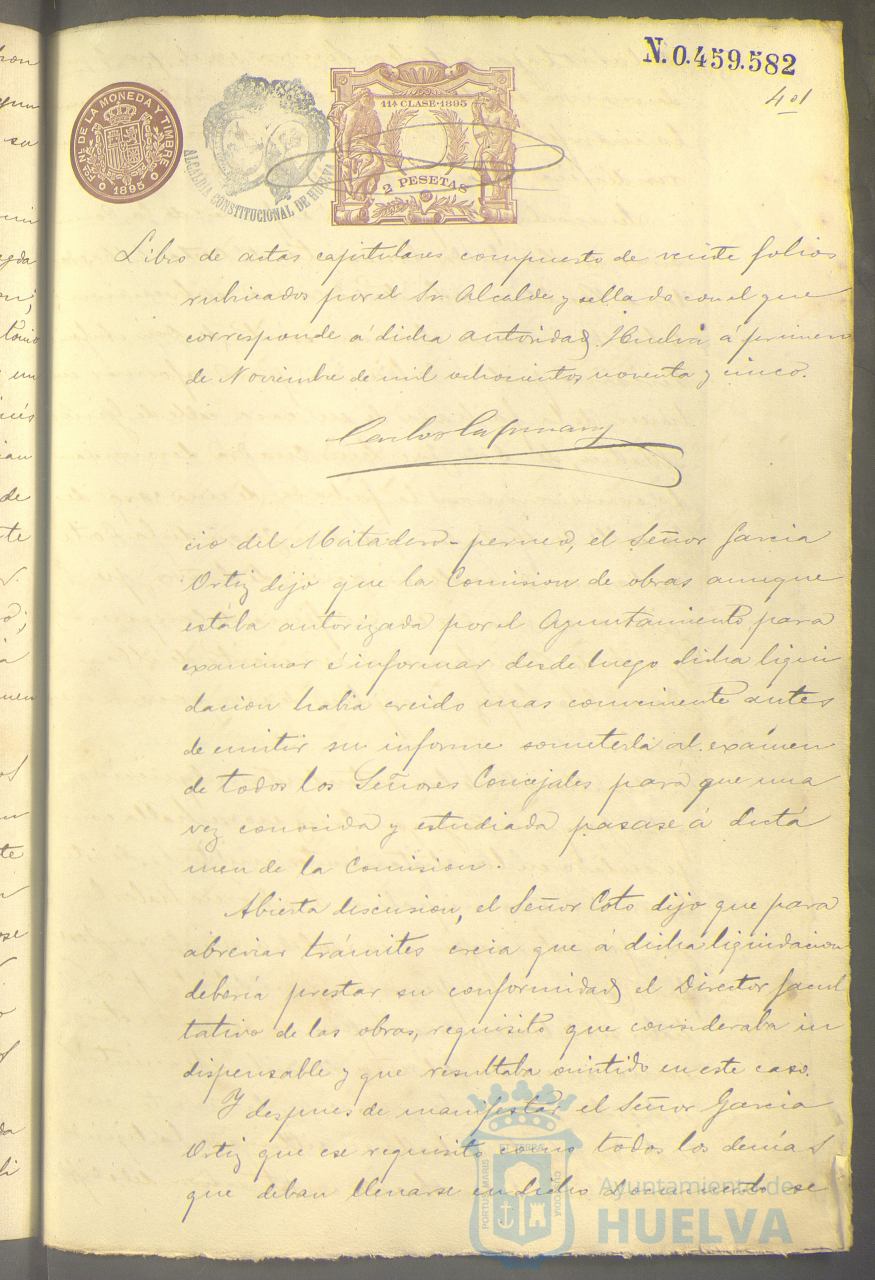 N.0.459.582
401
FÁBª. Nª. DE LA MONEDA Y TIMBRE
1895
ALCALDIA CONSTITUCIONAL DE HUELVA
11ª CLASE·1895
2 PESETAS
Libro de actas capitulares compuesto de veinte folios
rubricados por el Sr. Alcalde y sellado con el que
corresponde á dicha autoridad. Huelva á primero
de Noviembre de mil ochocientos noventa y cinco.
Carlos
cio del Matadero-perneo, el Señor Garcia
Ortiz dijo que la Comision de obras aunque
estaba autorizada por el Ayuntamiento para
examinar é informar desde luego dicha liqui
dacion habia creido mas conveniente antes
de emitir su informe someterla al exámen
de todos los Señores Concejales para que una
vez conocida y estudiada pasase á dictá
men de la Comision.
Abierta discusion, el Señor Coto dijo que para
abreviar trámites creia que á dicha liquidacion
debería prestar su conformidad el Director facul
tativo de las obras, requisito que consideraba in
dispensable y que resultaba omitido en este caso.
Y despues de manifestar el Señor Garcia
Ortiz que ese requisito como todos los demás
que deban llenarse en dicho documento se
PORTUS MARIS ET TERRAE CUSTODIA
Ayuntamiento de
HUELVA